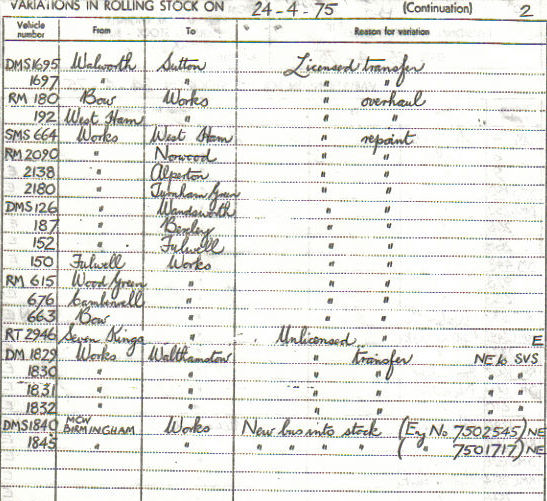 VARIATIONS IN ROLLING STOCK ON 24-4-75 (Continuation) 2
Vehicle number From To Reason for variation
DMS1695 Walworth Sutton Licensed transfer
1697 " " " "
RM 180 Bow Works " overhaul
192 West Ham " " "
SMS 664 Works West Ham " repaint
RM 2090 " Norwood " "
2138 " Alperton " "
2180 " Turnham Green " "
DMS126 " Wandsworth " "
187 " Bexley " "
152 " Fulwell " "
150 Fulwell Works " "
RM 615 Wood Green " " "
676 Camberwell " " "
663 Bow " " "
RT 2946 Seven Kings " Unlicensed " E
DM 1829 Works Walthamstow " transfer NE to SVS
1830 " " " " " "
1831 " " " " " "
1832 " " " " " "
DMS1840 MCW BIRMINGHAM Works New bus into stock (Eng No 7502545) NE
1845 " " " " " " ( " 7501717) NE